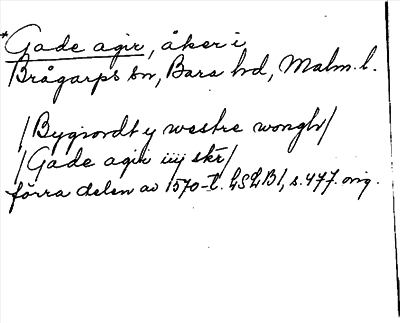 *Gade agir, åker i
Brågarps sn, Bara hd, Malm. l.
/Bygiordt y westre wongh/
/Gade agir iiij skr/
förra delen av 1570-t. LSLB1, s. 477. orig.